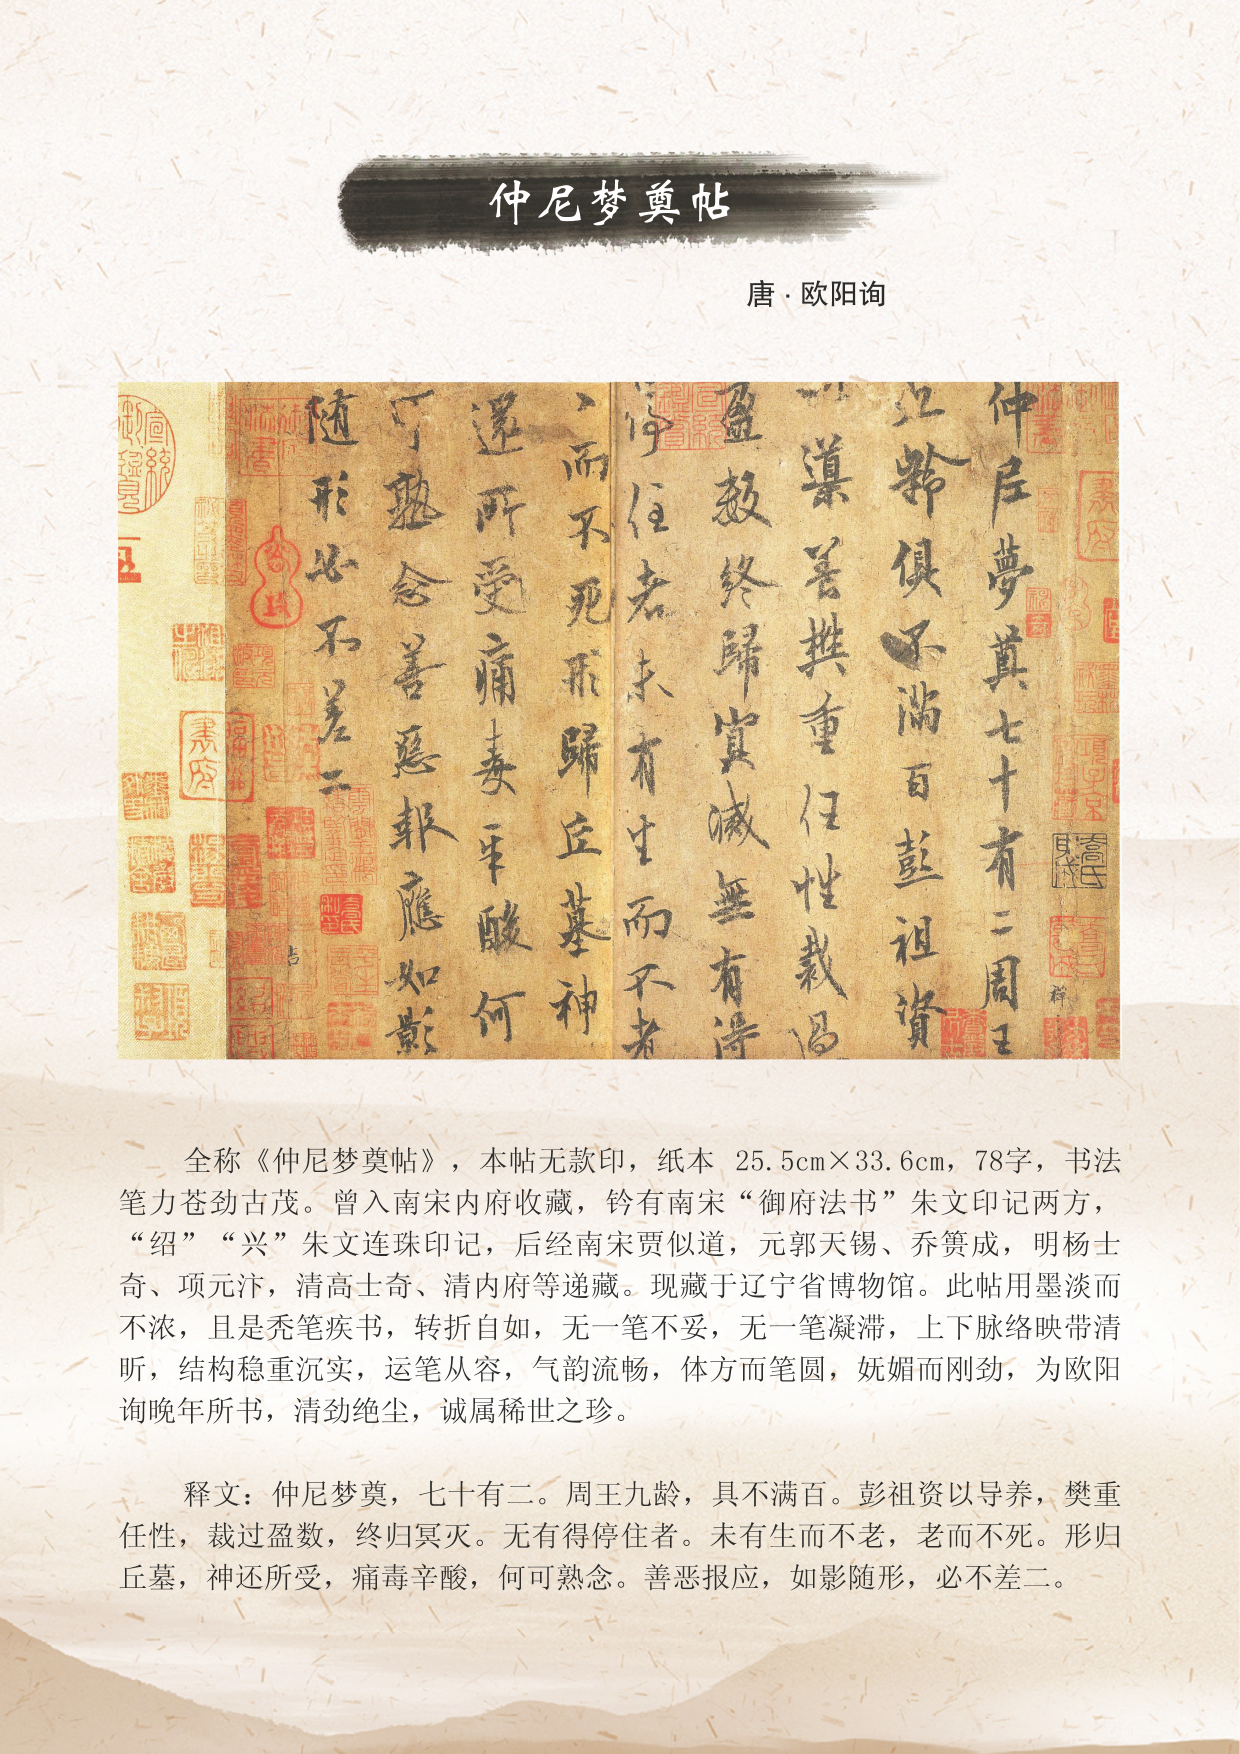 仲尼梦奠帖
唐·欧阳询
仲尼夢奠七十有二周王
九齡俱不滿百彭祖資
導養樊重任性裁過
盈數終歸冥滅無有得
停住者未有生而不老
而不死形歸丘墓神
還所受痛毒辛酸何
可熟念善惡報應如影
随形必不差二
全称《仲尼梦奠帖》，本帖无款印，纸本 25.5cm×33.6cm，78字，书法
笔力苍劲古茂。曾入南宋内府收藏，钤有南宋“御府法书”朱文印记两方，
“绍”“兴”朱文连珠印记，后经南宋贾似道，元郭天锡、乔篑成，明杨士
奇、项元汴，清高士奇、清内府等递藏。现藏于辽宁省博物馆。此帖用墨淡而
不浓，且是秃笔疾书，转折自如，无一笔不妥，无一笔凝滞，上下脉络映带清
昕，结构稳重沉实，运笔从容，气韵流畅，体方而笔圆，妩媚而刚劲，为欧阳
询晚年所书，清劲绝尘，诚属稀世之珍。
释文：仲尼梦奠，七十有二。周王九龄，具不满百。彭祖资以导养，樊重
任性，裁过盈数，终归冥灭。无有得停住者。未有生而不老，老而不死。形归
丘墓，神还所受，痛毒辛酸，何可熟念。善恶报应，如影随形，必不差二。